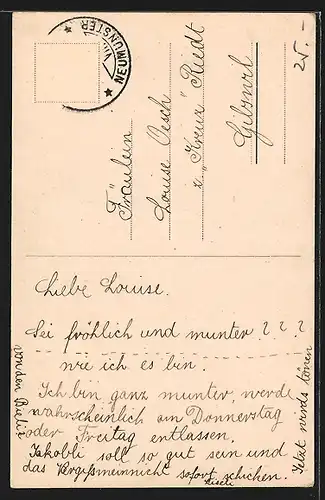 25.-
NEUMÜNSTER
VIII
Fräulein
Louise Oesch
z. "Kreuz" Riedt
Gibswil
Liebe Louise.
Sei fröhlich und munter???
wie ich es bin.
Ich bin ganz munter, werde
wahrscheinlich am Donnerstag
oder Freitag entlassen.
Jakobli soll so gut sein und
das Vergißmeinnicht sofort schicken.
Jetzt wirds tönen
von den